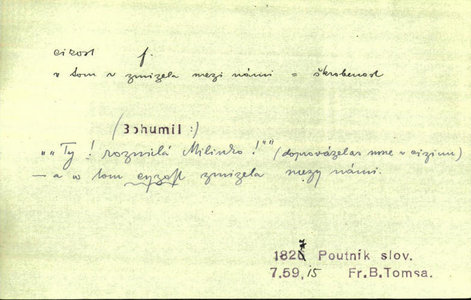 cizost f.
v tom v zmizela mezi námi a škrobenost
(Bohumil:)
„„Ty! rozmilá Milinko!"" (doprovázelas mne v cizinu)
— a w tom cyzost zmizela mezy námi.
1827 Poutník slov.
7.59,15 Fr.B.Tomsa.